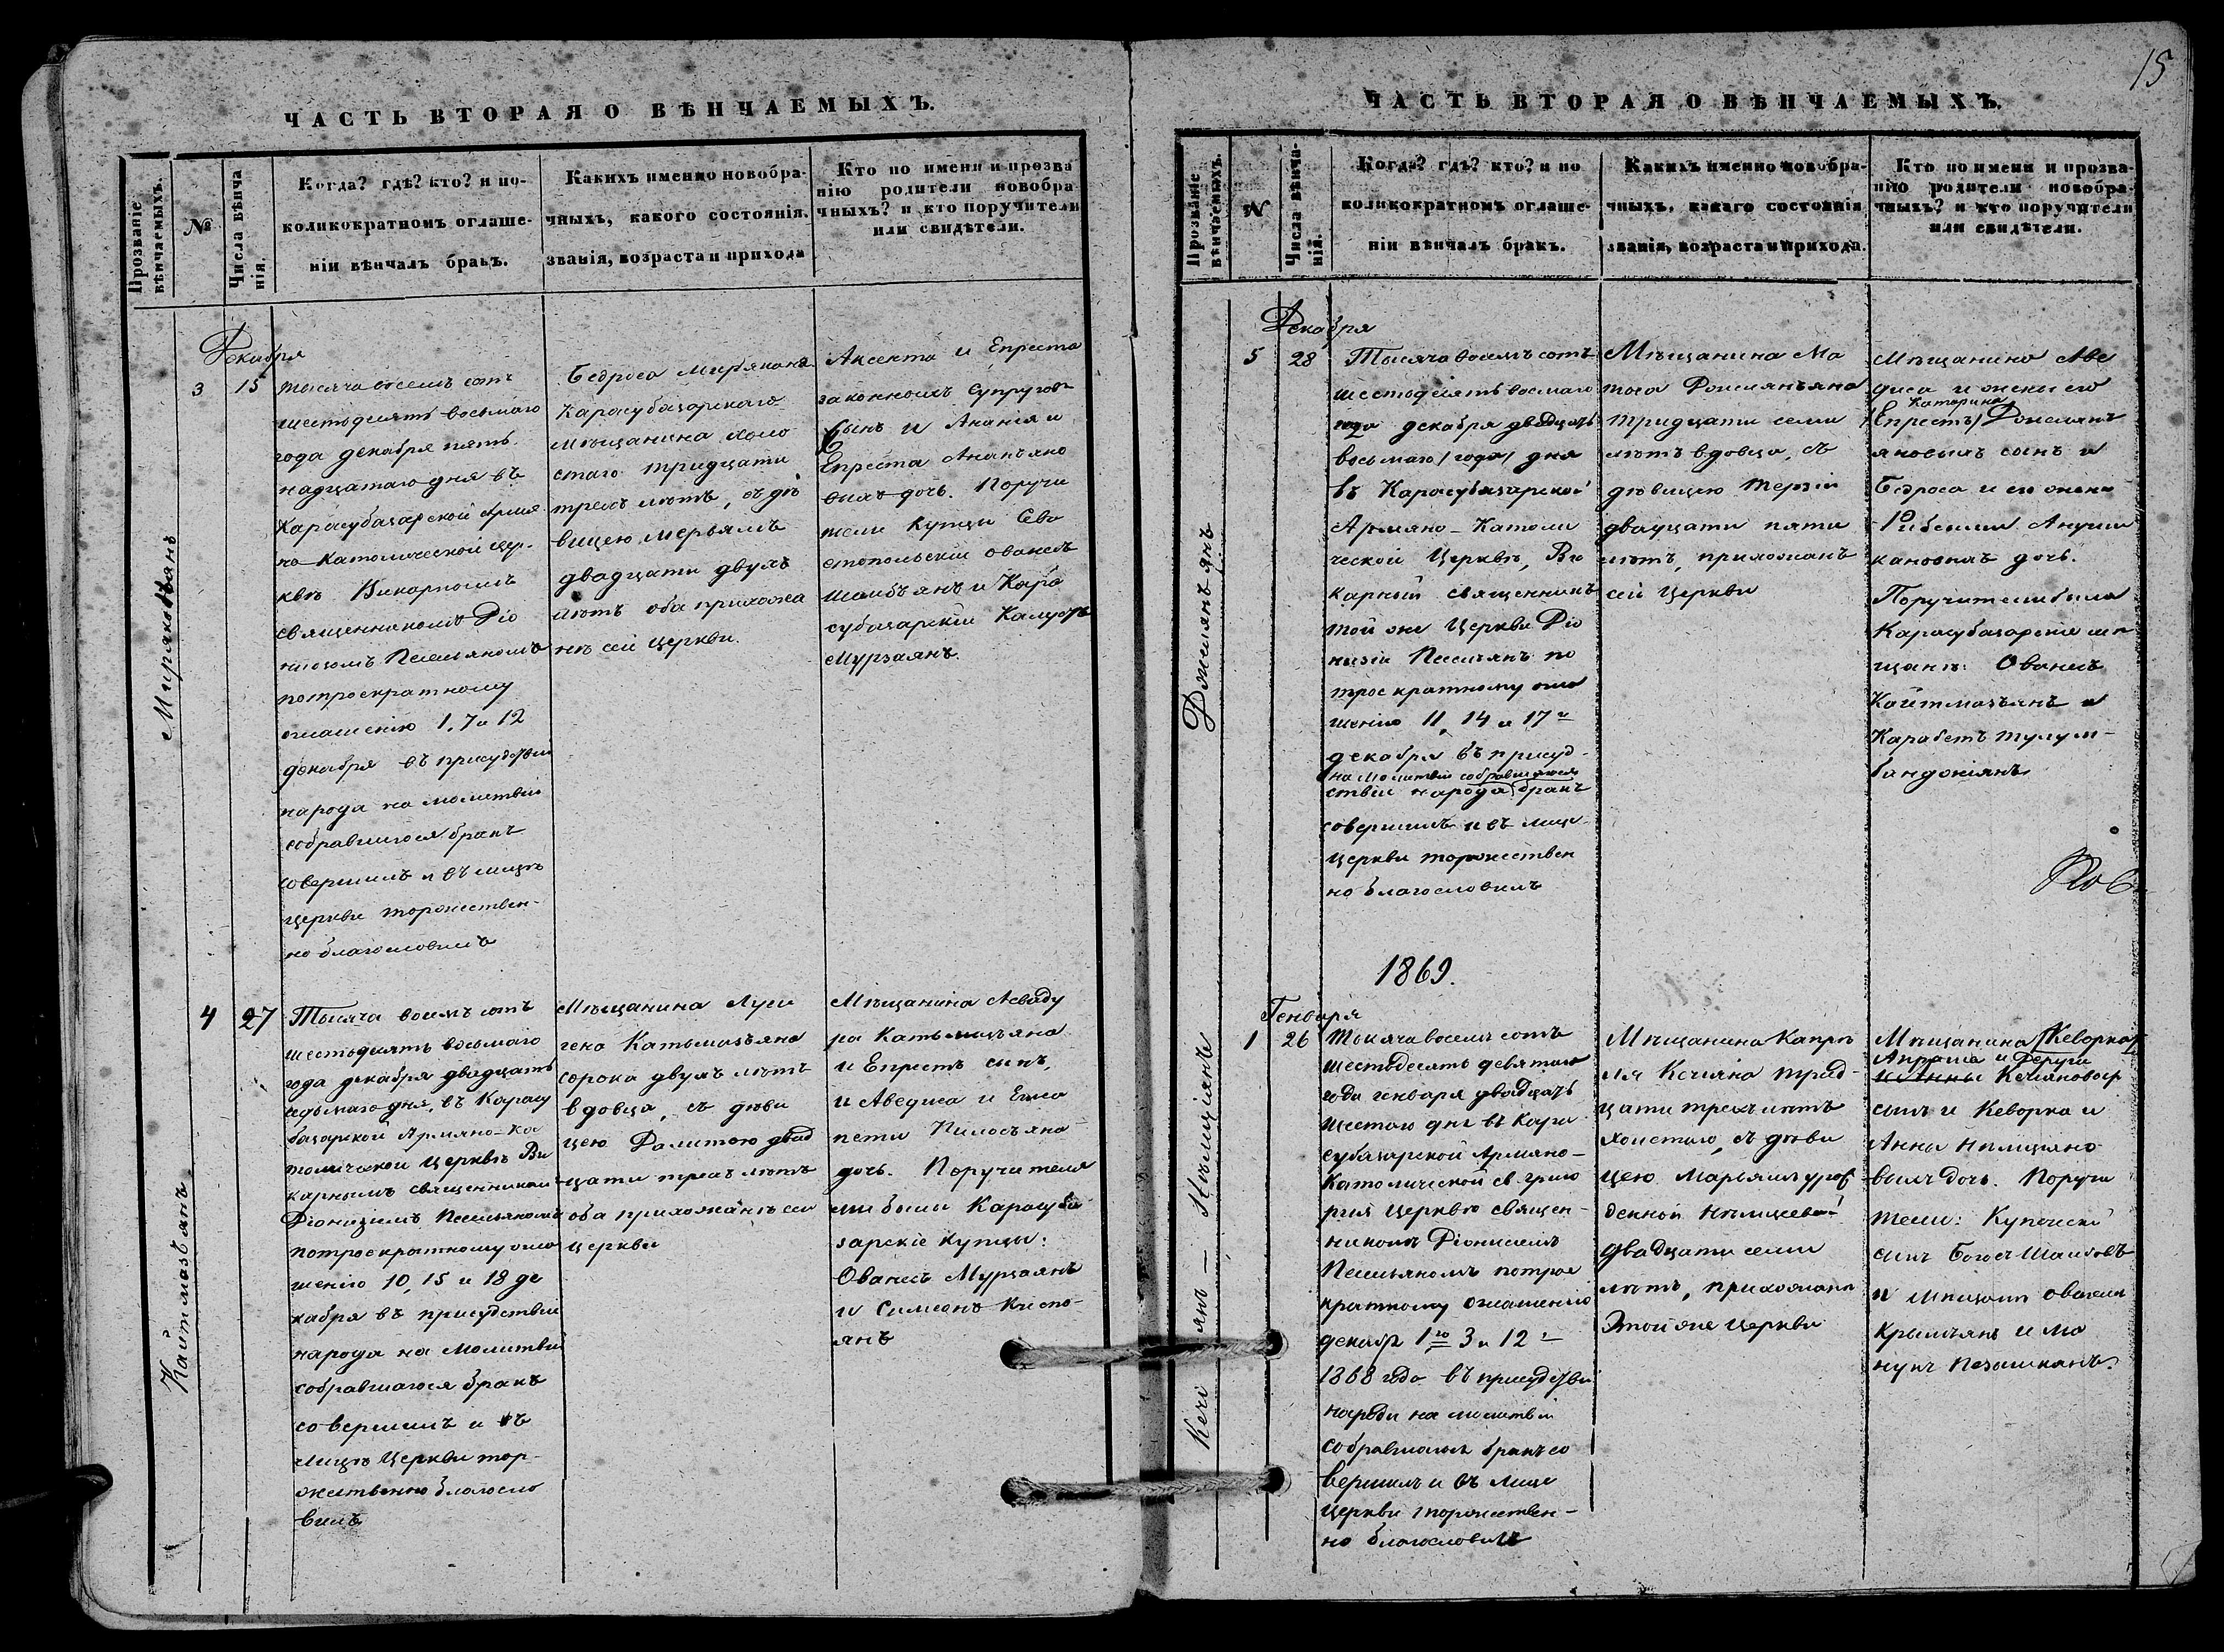 15
ЧАСТЬ ВТОРАЯ О ВѢНЧАЕМЫХЪ.
Прозваніе вѣнчаемыхъ.
№
Числа вѣнча
нія.
Когда? гдѣ? кто? и по-
коликократномъ оглаше-
ніи вѣнчалъ бракъ.
Какихъ именно новобра-
чныхъ, какого состоянія,
званія, возраста и прихода
Кто по имени и прозва
нію родители новобра
чныхъ? и кто поручители
или свидѣтели.
Мирякъянъ
Декабря
3
15
тысяча восемъ сотъ
шестьдесятъ восьмаго
года декабря пять
надцатаго дня въ
Карасубазарской Армя
но-Католической Цер-
квѣ Викарнымъ
священникомъ Діо
низомъ
потроекратному
оглашенію 1, 7 и 12
декабря въ присудствіи
народа на молитвіи
собравшагося бракъ
совершилъ и въ лицѣ
церкви торжествен-
но благословилъ
Бедроса Мирякяна
Карасубазарскаго
мѣщанина холо
стаго тридцати
трехъ лѣтъ, съ дѣ
вицею Мерьямъ
двадцати двухъ
лѣтъ оба прихожа
нѣ сей церкви.
Аксента и Епреста
законныхъ супруговъ
Сынъ и Ананія и
Епреста Ананьяно
выхъ дочь. Поручи
тели Купцы Сева
стопольскій Ованесъ
Шаибъянъ и Кара
субазарскій Калустъ
Мурзаянъ.
Кайтмазъянъ
4
27
Тысяча восемъ сотъ
шестьдесятъ восьмаго
года декабря двадцать
седьмаго дня, въ Карасу
базарской Армяно-Ка
толической Церквѣ Ви
карнымъ священникомъ
Діонизимъ
потроекратному огла
шенію 10, 15 и 18 де
кабря въ присудствіи
народа на молитвіи
собравшагося бракъ
совершилъ и въ
лицѣ Церкви тор-
жественно благосло
вилъ
Мѣщанина Луси
гена Катьмазъяна
сорока двухъ лѣтъ
вдовца, съ дѣви
цею Далитою двад
цати трехъ лѣтъ
оба прихожанѣ сей
церкви
Мѣщанина Асваду
ра Катьмазъяна
и Епрестъ сынъ,
и Аведиса и Елиса
пети Пилосъяна
дочь. Поручителя
ми были Карасуба
зарскіе купцы:
Ованесъ Мурзаянъ
и Симеонъ Киспо-
янъ
ЧАСТЬ ВТОРАЯ О ВѢНЧАЕМЫХЪ.
Прозваніе вѣнчаемыхъ.
№
Числа вѣнча-
нія.
Когда? гдѣ? кто? и по
коликократномъ оглаше-
ніи вѣнчалъ бракъ.
Какихъ именно новобра-
чныхъ, какаго состоянія
званія, возраста и прихода.
Кто по имени и прозва-
нію родители новобра-
чныхъ? и кто поручители
или свидѣтели.
Декабря
5
28
Тысяча восемъ сотъ
шестьдесятъ восмаго
года декабря двадцать
восьмаго /года/ дня
въ Карасубазарской
Армяно-Католи
ческой Церквѣ, Ви
карный священникъ
той же Церкви Діо
низій по
трое кратному огла
шенію 11, 14 и 17 и
декабря въ присуд-
на молитвіи собравшагося
ствіи народа бракъ
совершилъ и въ лице
церкви торжествен
но благословилъ
Мѣщанина Ма
тоса
тридцати семи
лѣтъ вдовца, съ
дѣвицею Терзіи
двадцати пяти
лѣтъ, прихожанѣ
сей Церкви
Мѣщанина Аве
диса и жены его
Катарина
/Епрестъ/
яновыхъ сынъ и
Бедроса и его жены
кановыхъ дочь.
Поручители были
Карасубазарскіе мѣ
щанѣ: Ованесъ
Кайтмазъянъ и
Карабетъ Тулум-
1869.
Генваря
1
26
Тысяча восемъ сотъ
шестьдесятъ девятаго
года генваря двадцать
шестаго дня въ Кара
субазарской Армяно-
Католической св. Григо
рія Церквѣ священ-
никомъ Діонисіемъ
потрое
кратному оглашенію
декабр 1го 3 и 12
1868 года въ присудствіи
народа на молитвіи
собравшагося бракъ со
вершилъ и въ лице
церкви торжествен-
но благословилъ
Мѣщанина Капріе
ля Кечіяна трид-
цати трехъ лѣтъ
холстаго, съ дѣви
цею Марьямъ урож
денной
двадцати семи
лѣтъ, прихожанѣ
Этой же церкви
Мѣщанина /Кеворка/
и Анны Кечіяновыхъ
сынъ и Кеворка и
Анны
выхъ дочь. Поручи
тели: Купеческій
сынъ Богосъ Шаибовъ
и мѣщанѣ Ованесъ
Крымъянъ и Ма
нукъ